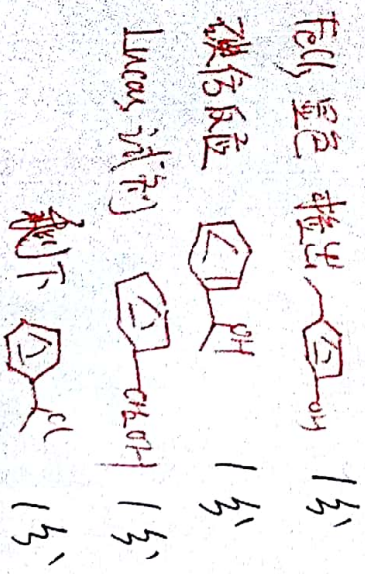 FeCl₃ 显色 检出 OH 1分
碘仿反应 OH 1分
Lucas 试剂 CH₂OH 1分
剩下 Cl 1分